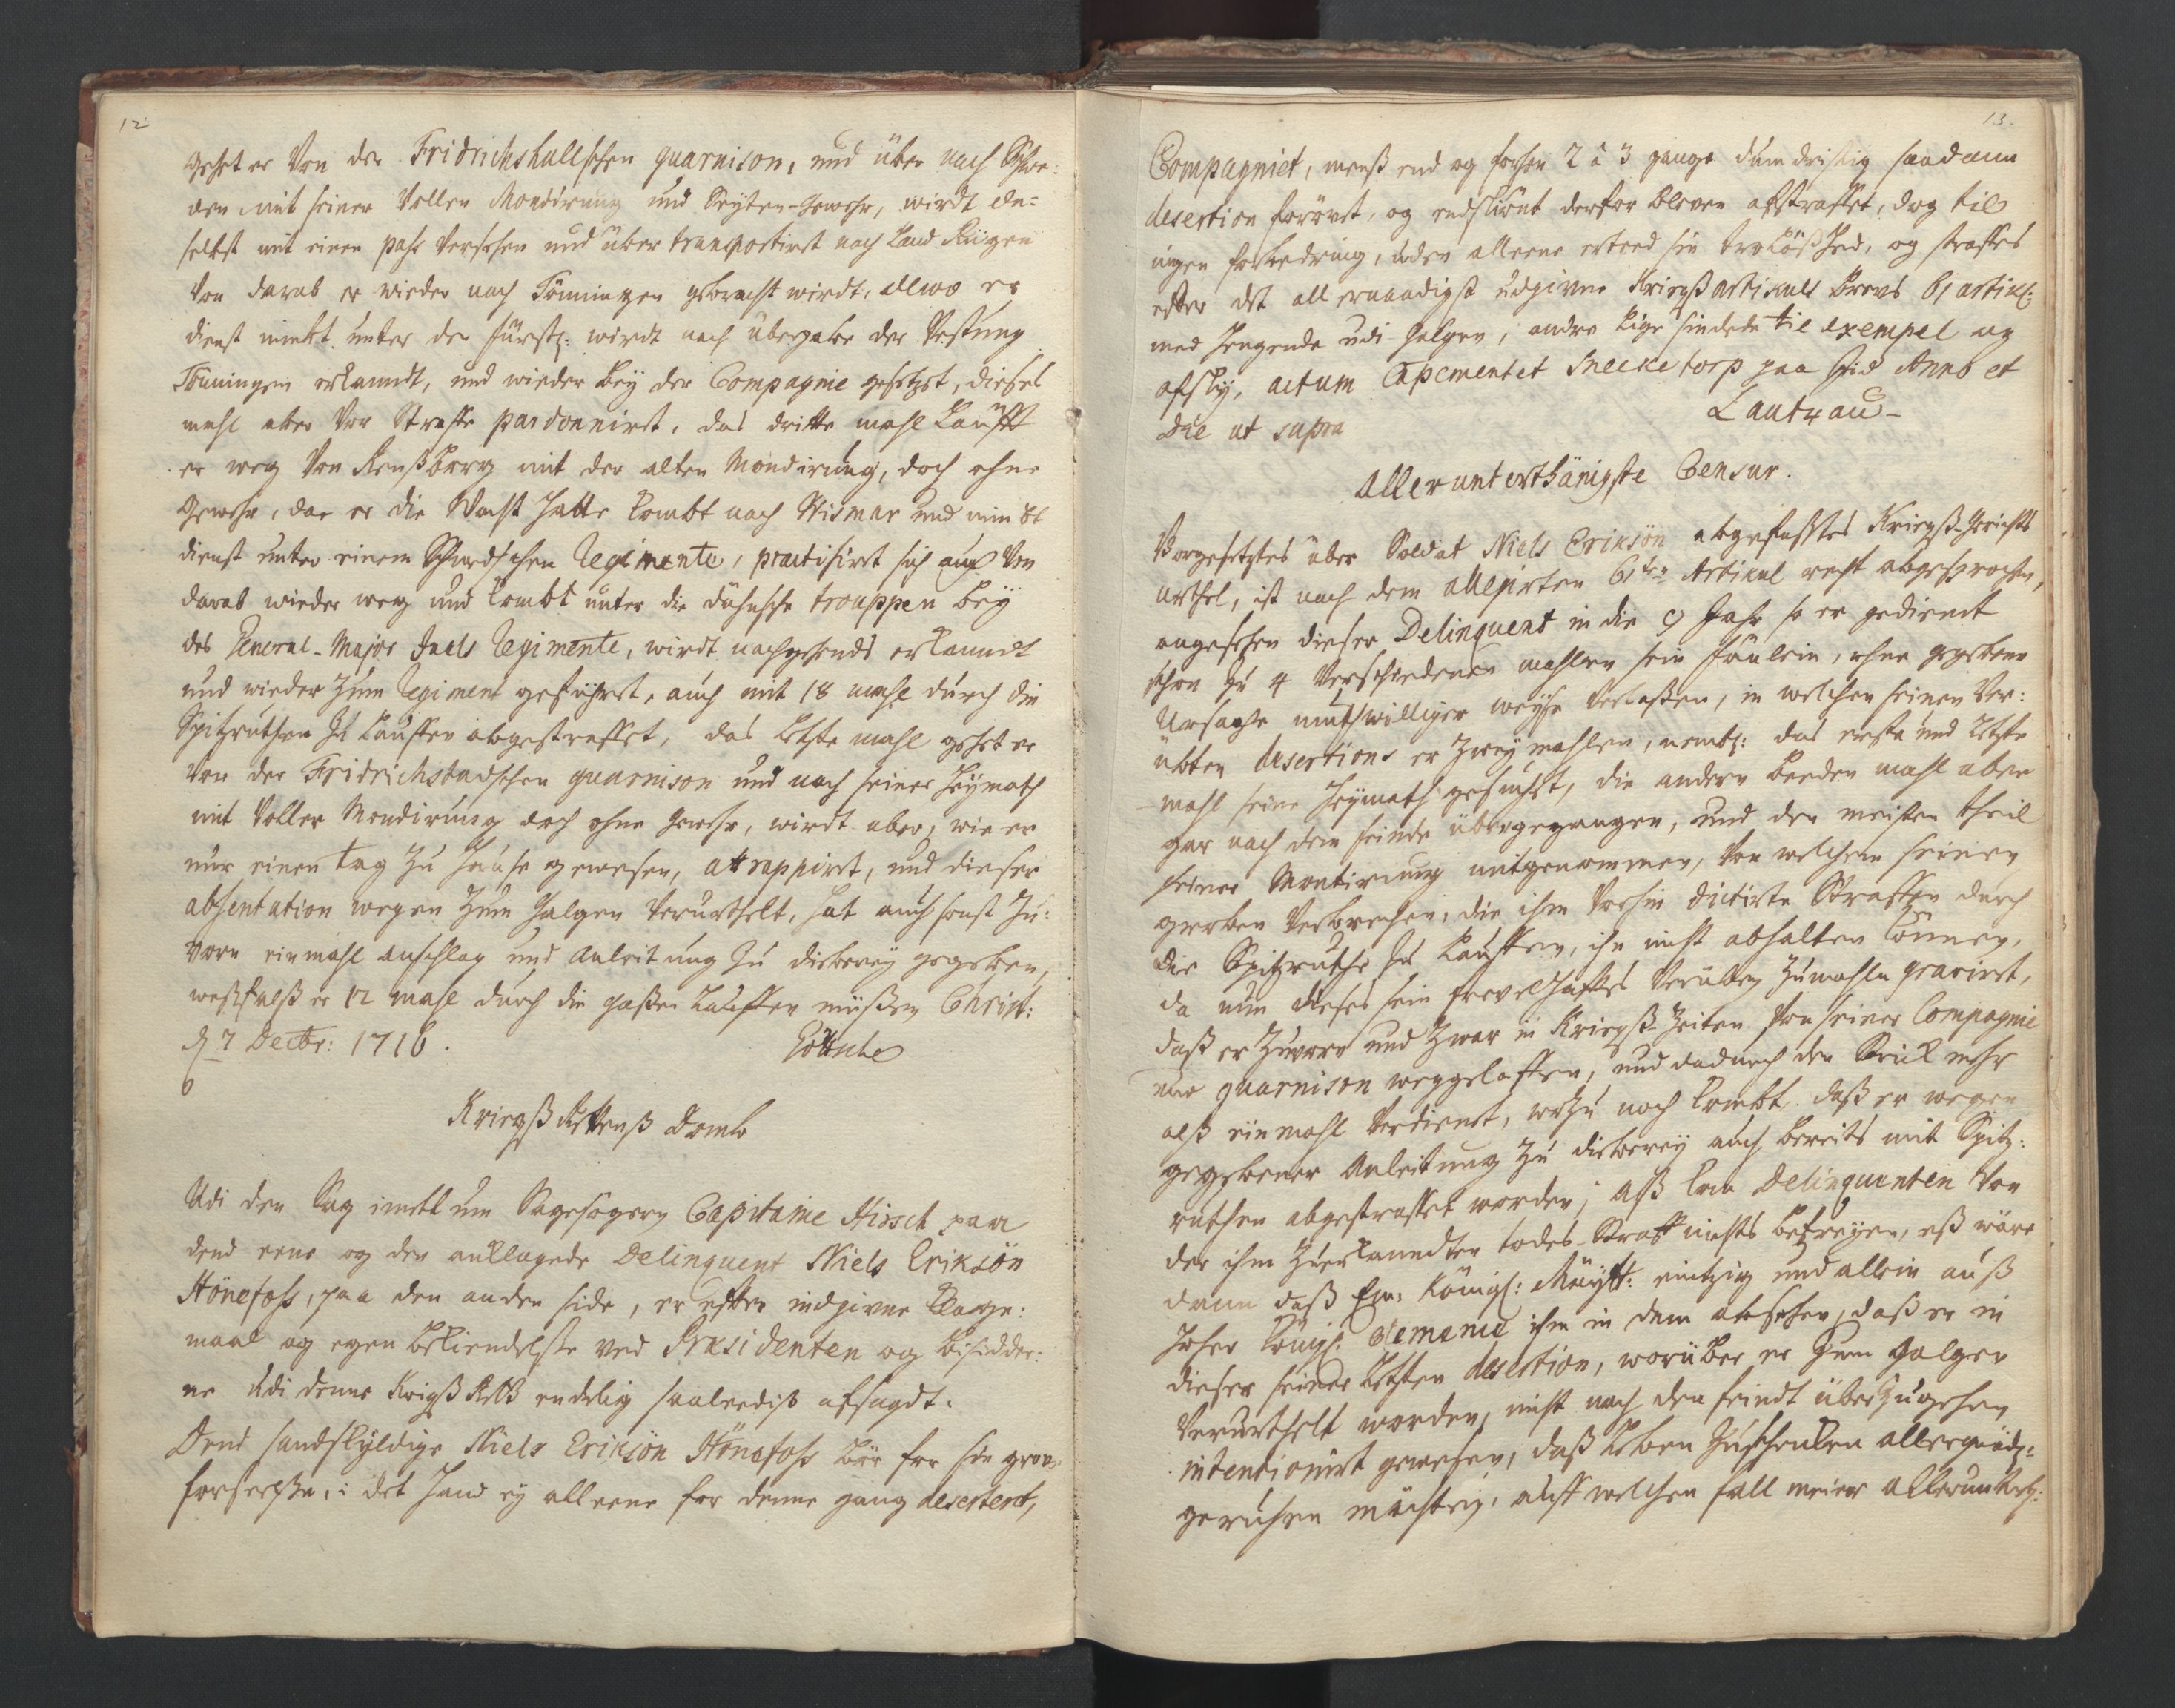 12
gehet er Von der Fridrichshallschen guarnison, und über nach Schwe:
den mit seiner Vollen Mondirung und Seyten-gewehr, wirdt da-
selbst mit einen paß Versehen und über transportirt nach Land Rügen
Von darab er wieder nach Tönningen gebracht wirdt, allwo er
dienst nimbt unter der fürstl: wirdt nach übergabe der Vestung
Tönningen erkanndt, und wieder bey der Compagnie gesetzet, dieses
mahl aber Vor Straffe pardonnirt. das dritte mahl Laufft
er weg Von Renßborg mit der alten Mondirung, doch ohne
gewehr, da er die Wacht hatte kombt nach Wismar und nimbt
dienst unter einem Schwedschen Regimente, practisirt sich auch Von
darab wieder weg und kombt unter die dähnsche trouppen bey
des General-Major Juels Regimente, wirdt nachgehends erkanndt
und wieder zum Regiment geführet, auch mit 18 mahl durch die
Spitzruthen zu Lauffen abgestraffet, das Letzte mahl gehet er
Von der Fridrichstadschen guarnison und nach seiner Heymath
mit Voller Mondirung doch ohne gewehr, wirdt aber, wie er
nur einen tag zu Hause gewesen, attrappirt, und dieser
absentation wegen zum galgen Verurthelt, hat auch sonst zu:
vorn einmahl anschlag und anleitung zu dieberey gegeben,
weßfalß er 12 mahl durch die gaßen Lauffen müßen Christ:
d 7 Decbr: 1716.
Gottsche
Kriegß Rettenß Domb
Udi den Sag imellum Sagesögern Capitaine Hirsch paa
dend eene og den anklagede Delinquent Niels Eriksön
Hönefoss, paa den anden side, er efter indgivne Klage:
maal og egen bekiendelße ved Præsidenten og bisidder:
ne udi denne Krigß Rett endelig saaleediß afsagdt.
Dend sandskyldige Niels Eriksön Hönefoss bör for sin grove
forseelße, i det hand ey alleene for denne gang desertert,
13.
Compagniet, menß end og forhen 2 à 3 gange dumdristig saadann
desertion forövet, og endskiönt derfor bleven afstraffet, dog til
ingen forbedring, uden alleene erteed sin troLößhed, og straffes
efter det allernaadigst udgivne Kriegßartikuls brevs 61 artikl:
med hengende udi galgen, andre Lige sindede til exempel og
afsky, actum Capcmentet Sneeketorp paa stid Anno et
Die ut supra
Lautzau
allerunterthänigste Censur.
Vorgesetztes über Soldat Niels Eriksön abgefaßtes Kriegß gerichts
urthel, ist nach dem allegirten 61ten Artikul recht abgesprochen,
angesehen dieser Delinquent in die 9 Jahr so er gedient
schon zu 4 Verschiedenen mahlen sein fänlein, ohne gegebene
Ursache muthwilliger weyse Verlaßen, in welchen seinen Ver:
übten desertions er zwey mahlen, nembl: das erste und Letzte
mahl seine Heymath gesucht, die andern beeden mahl aber
gar nach dem feinde übergegangen, und den meisten theil
seiner Montirung mitgenommen, Von welchem seinen
groben Verbrechen, die ihm Vorhin dictirte Straffen durch
die Spitzruthe zu Lauffen, ihn nicht abhalten können,
da nun dieses sein frevelhafftes Verüben zumahle gravirt,
daß er zuvorn und zwar in Kriegß Zeiten Von seiner Compagnie
und guarnison weggelaffen, und dadurch den Strick mehr
alß einmahl Verdient, wozu noch kombt, daß er wegen
gegebener Anleitung zu dieberey auch bereits mit Spitz:
ruthen abgestraffet worden; Alß kan Delinquenten Von
der ihm zuerkanndten todes-Straff nichts befreyen, eß wäre
dann daß Ew: Königl: Mäytt: eintzig und allein auß
hoher königl: Clemence ihm in dem absehen, daß er in
dieser seiner Letzten desertion, worüber er zum galgen
Verurthelt worden, nicht nach den feindt überzugehen
intentionirt gewesen, daß Leben zuschenken allergnäd:
geruhen möchten; auff welchen fall meiner allerunterth: